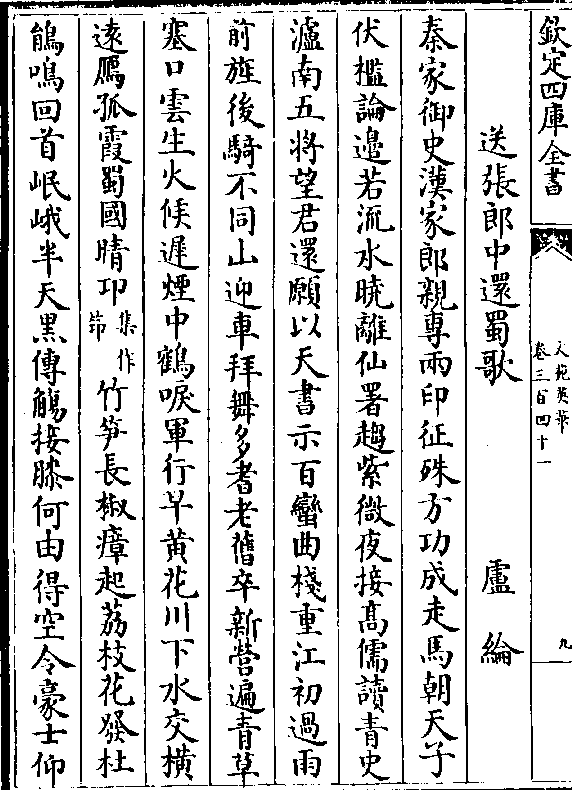 欽定四庫全書
文苑英華
卷三百四十一
九
送張郎中還蜀歌 盧綸
秦家御史漢家郎親專兩印征殊方功成走馬朝天子
伏檻論邉若流水曉離仙署趨紫微夜接髙儒讀青史
瀘南五將望君還願以天書示百蠻曲棧重江初過雨
前旌後騎不同山迎車拜舞多耆老舊卒新營遍青草
塞口雲生火候遲煙中鶴唳軍行早黄花川下水交横
逺鴈孤霞蜀國晴邛集作笻竹笋長椒瘴起荔枝花發杜
鵑鳴回首岷峨半天黒傳觴接膝何由得空令豪士仰